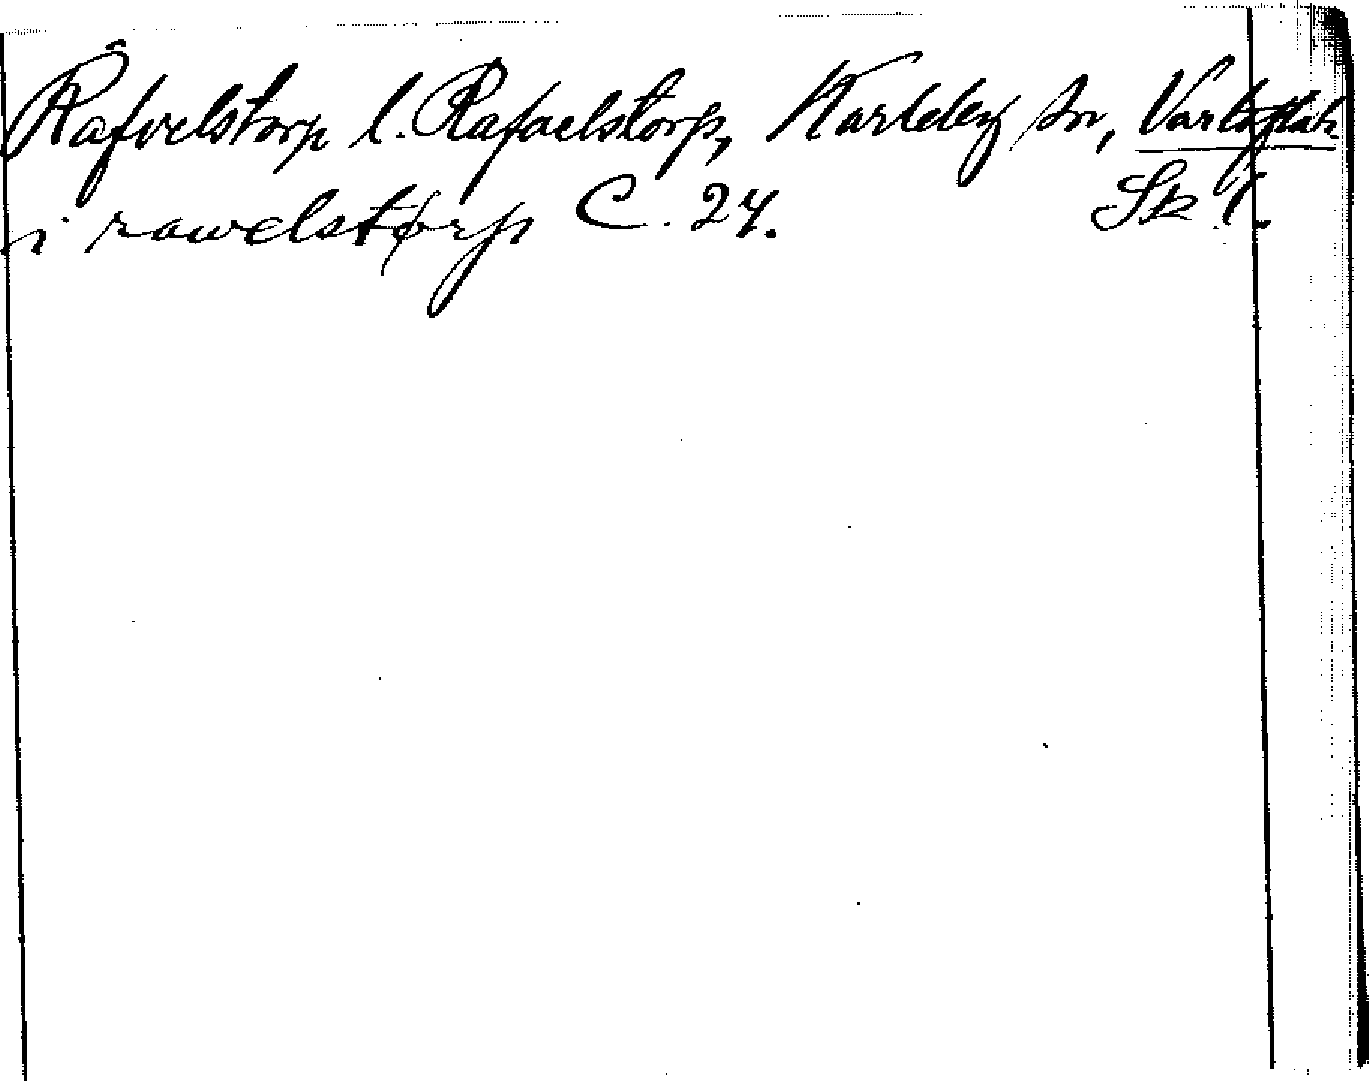 Rafvelstorp l. Rafaelstorp, Karleby sn, Vartofta h
i rawelstorp C. 27. Sk l.